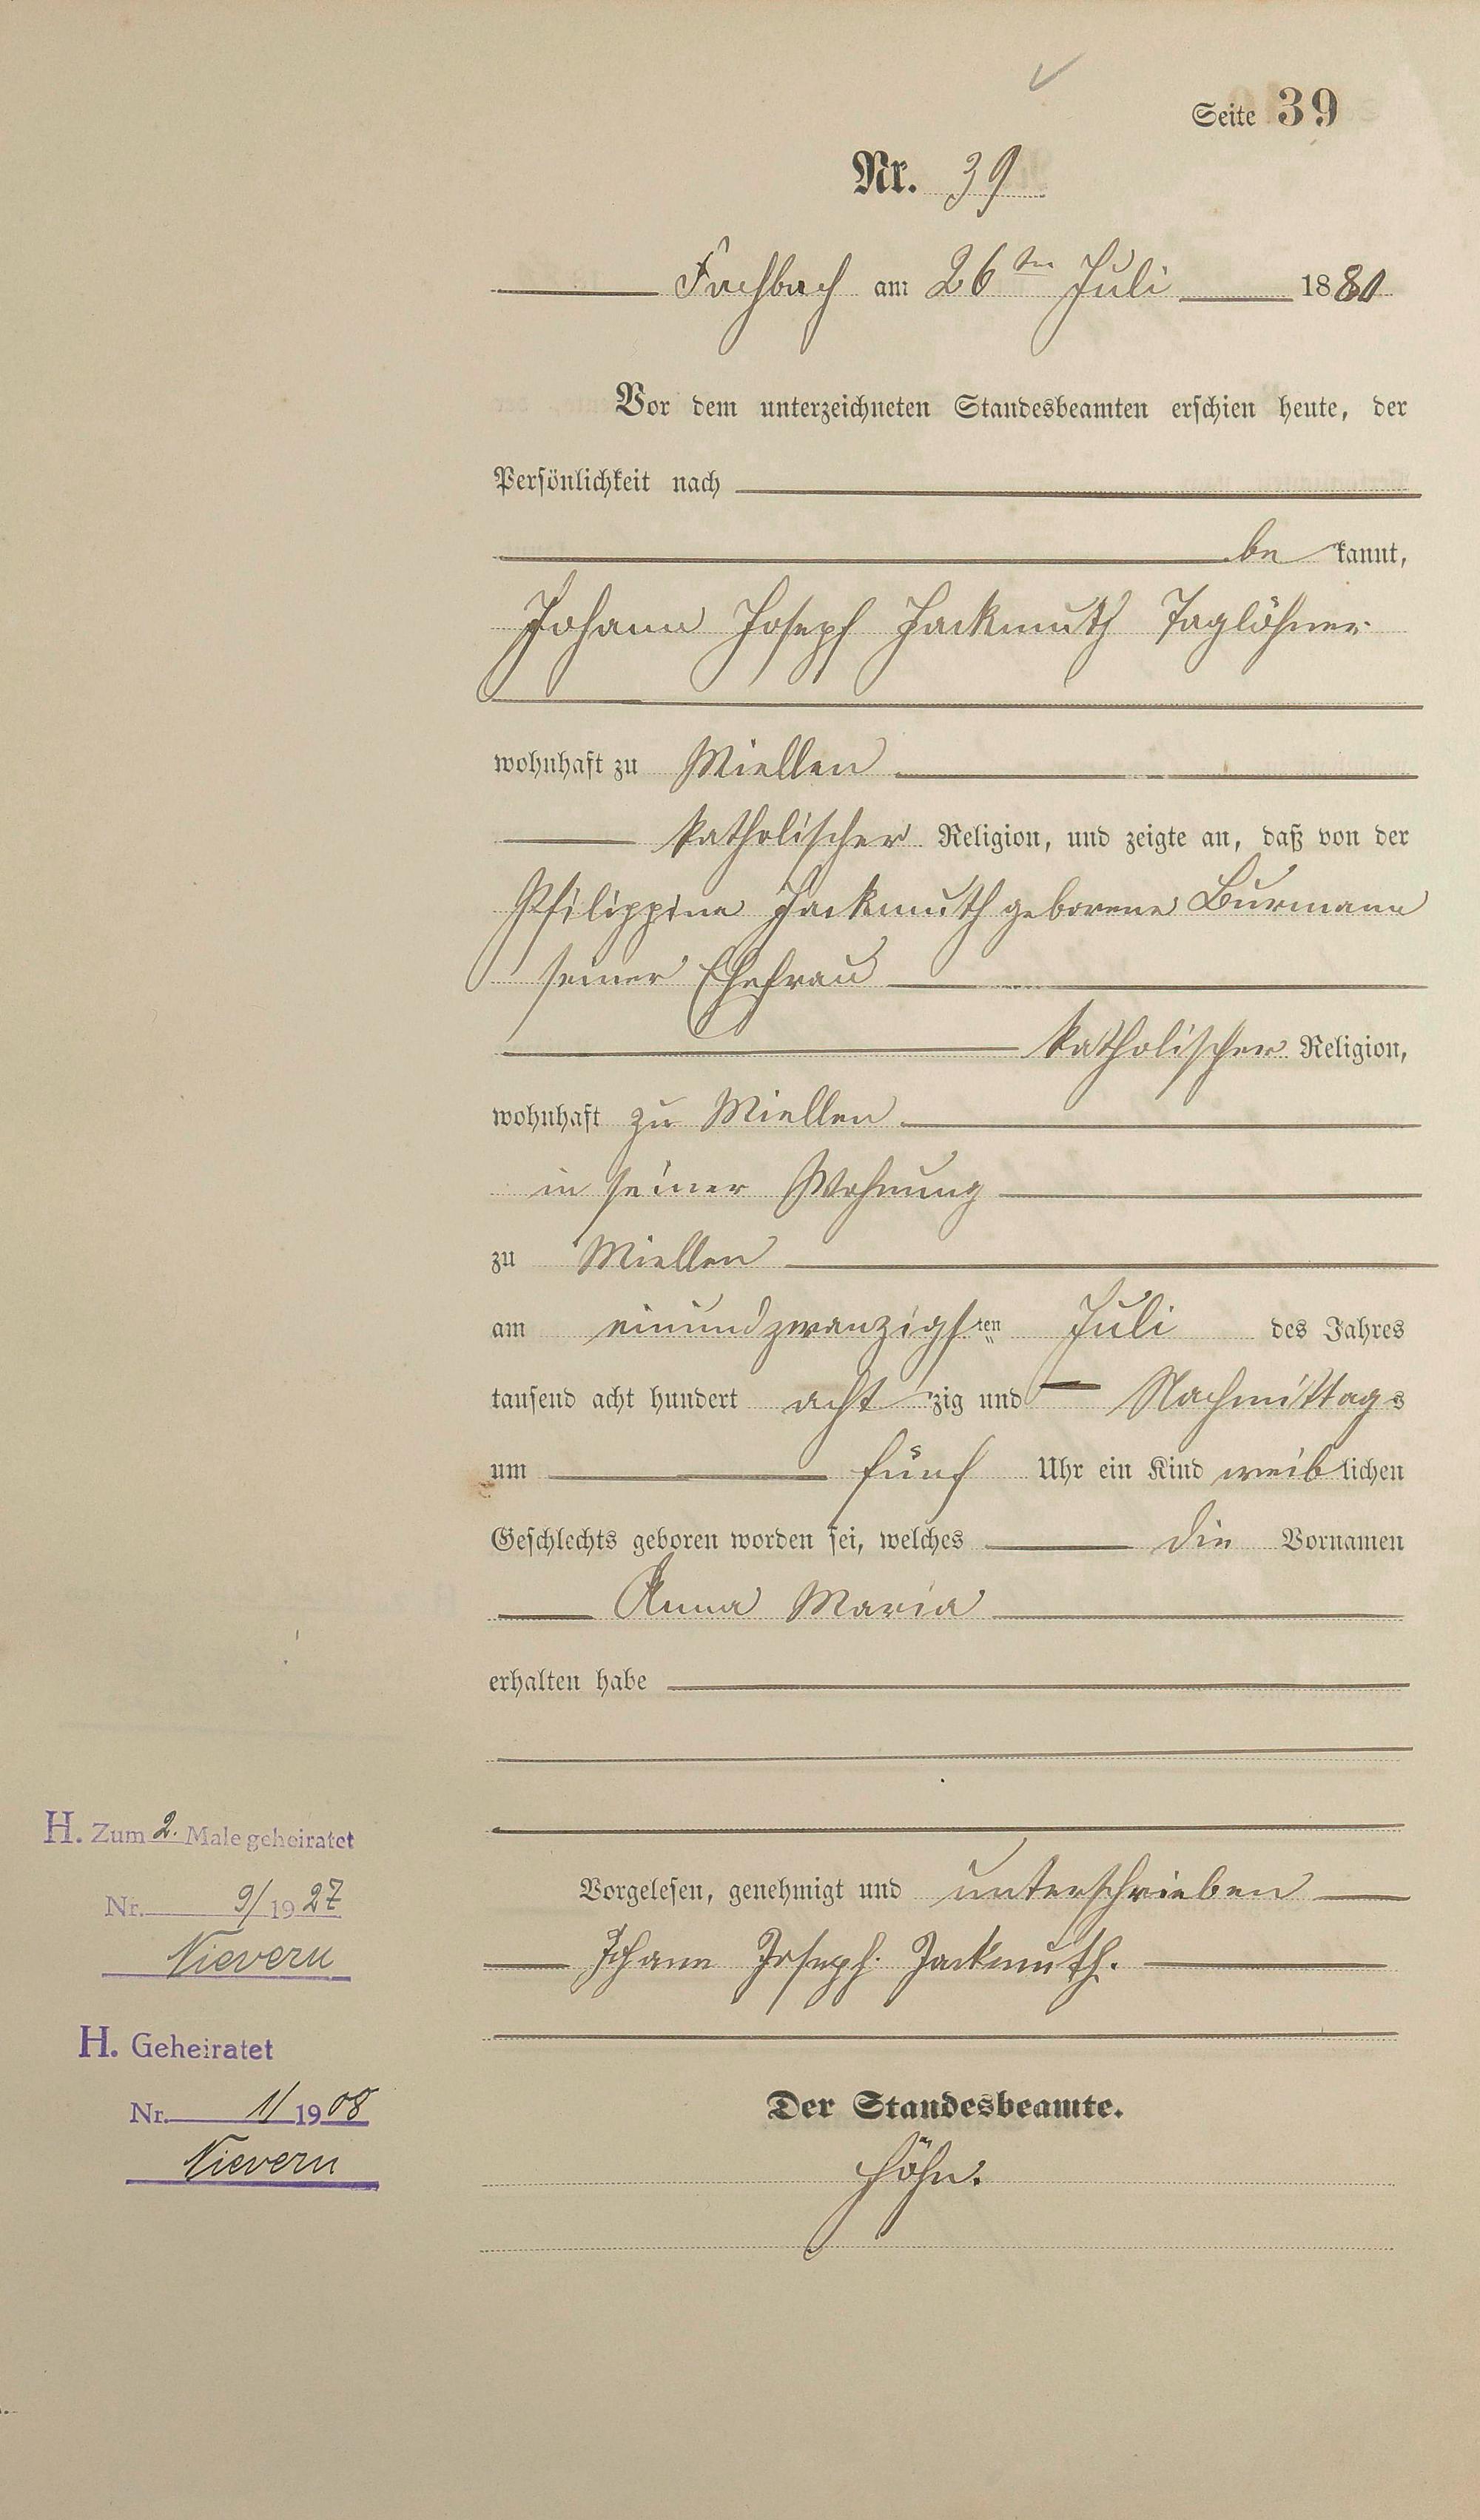 Seite 39
Nr. 39
Fachbach am 26ten Juli 1880
Vor dem unterzeichneten Standesbeamten erschien heute, der
Persönlichkeit nach
be kannt,
Johann Joseph Hackmuth Taglöhner
wohnhaft zu Miellen
katholischer Religion, und zeigte an, daß von der
Philippine Hackmuth geborene Burmann
seiner Ehefrau
katholischer Religion,
wohnhaft zu Miellen
in seiner Wohnung
zu Miellen
am einundzwanzigsten Juli des Jahres
tausend acht hundert acht zig und Nachmittags
um fünf Uhr ein Kind weiblichen
Geschlechts geboren worden sei, welches die Vornamen
Anna Maria
erhalten habe
H. Zum 2. Male geheiratet
Nr. 9/1927
Nievern
Vorgelesen, genehmigt und unterschrieben
Johann Joseph Hackmuth.
H. Geheiratet
Nr. 1/1908
Nievern
Der Standesbeamte.
Höhn.